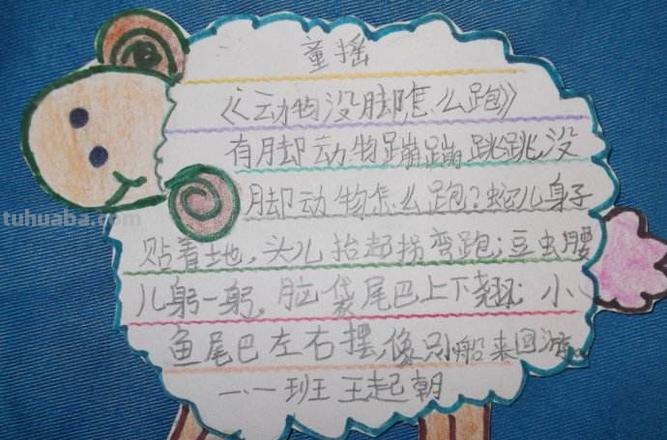 童摇
《动物没脚怎么跑》
有脚动物蹦蹦跳跳没
脚动物怎么跑?蛇儿身子
贴着地,头儿抬起拐弯跑;豆虫腰
儿躬一躬,脑袋尾巴上下翘;小
鱼尾巴左右摆,像只小船来回游。
一.一班王起朝
tuhuaba.com